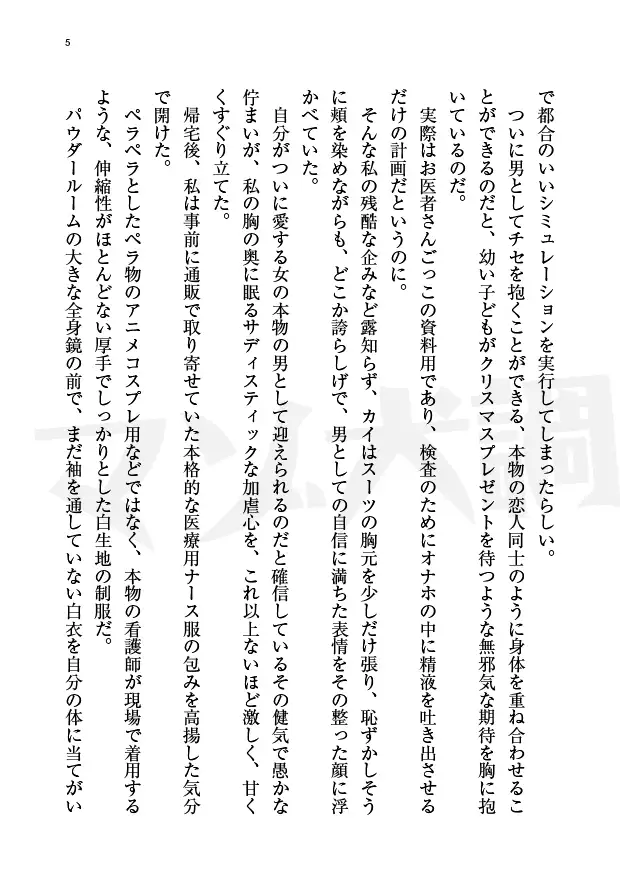 5
で都合のいいシミュレーションを実行してしまったらしい。
ついに男としてチセを抱くことができる、本物の恋人同士のように身体を重ね合わせるこ
とができるのだと、幼い子どもがクリスマスプレゼントを待つような無邪気な期待を胸に抱
いているのだ。
実際はお医者さんごっこの資料用であり、検査のためにオナホの中に精液を吐き出させる
だけの計画だというのに。
そんな私の残酷な企みなど露知らず、カイはスーツの胸元を少しだけ張り、恥ずかしそう
に頬を染めながらも、どこか誇らしげで、男としての自信に満ちた表情をその整った顔に浮
かべていた。
自分がついに愛する女の本物の男として迎えられるのだと確信しているその健気で愚かな
佇まいが、私の胸の奥に眠るサディスティックな加虐心を、これ以上ないほど激しく、甘く
くすぐり立てた。
帰宅後、私は事前に通販で取り寄せていた本格的な医療用ナース服の包みを高揚した気分
で開けた。
ペラペラとしたペラ物のアニメコスプレ用などではなく、本物の看護師が現場で着用する
ような、伸縮性がほとんどない厚手でしっかりとした白生地の制服だ。
パウダールームの大きな全身鏡の前で、まだ袖を通していない白衣を自分の体に当てがい
マゾ犬調